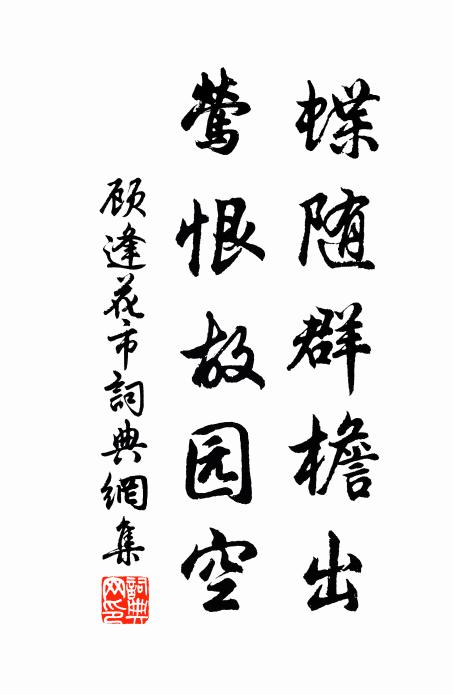 蝶随群檐出
莺恨故园空
顾逢花市詞典網集
詞典网印